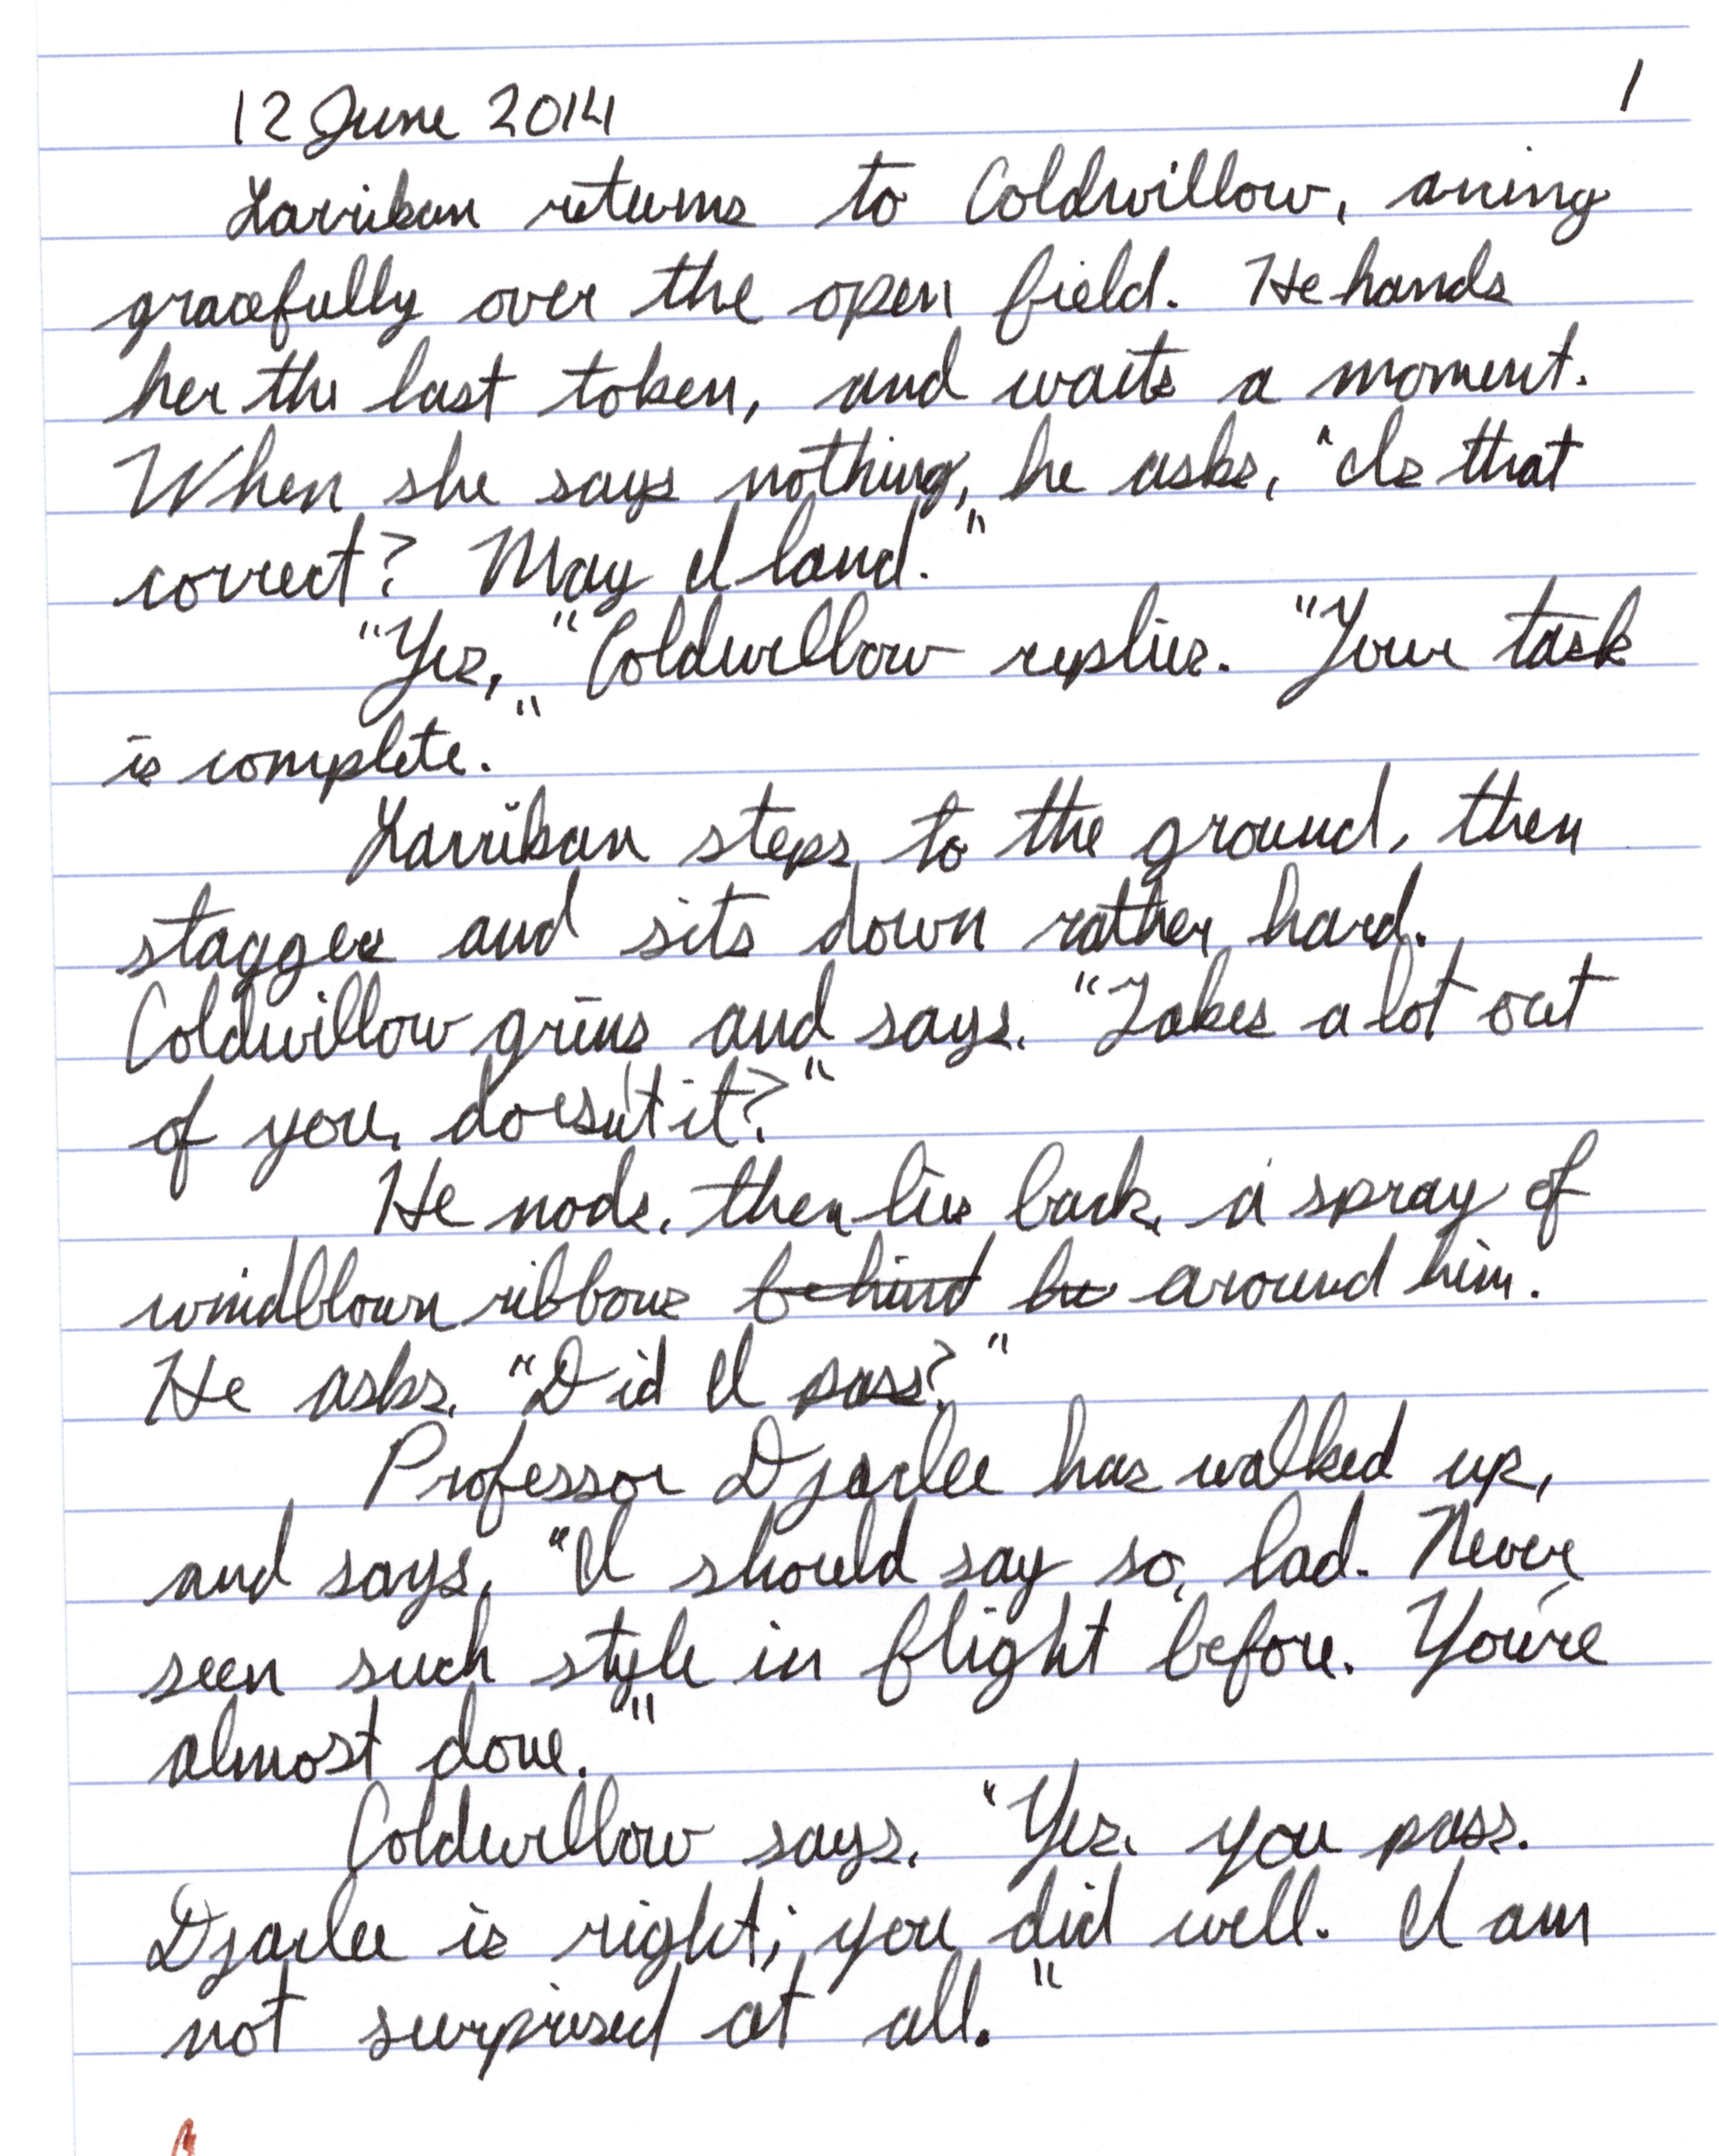 12 June 2014 1
Larrikan returns to Coldwillow, arcing
gracefully over the open field. He hands
her the last token, and waits a moment.
When she says nothing, he asks, "Is that
correct? May I land."
"Yes," Coldwillow replies. "Your task
is complete."
Larrikan steps to the ground, then
staggers and sits down rather hard.
Coldwillow grins and says, "Takes a lot out
of you, doesn't it?"
He nods, then lies back, a spray of
windblown ribbons behind his around him.
He asks, "Did I pass?"
Professor Djarlee has walked up,
and says, "I should say so, lad. Never
seen such style in flight before. You're
almost done."
Coldwillow says, "Yes, you pass.
Djarlee is right; you did well. I am
not surprised at all."